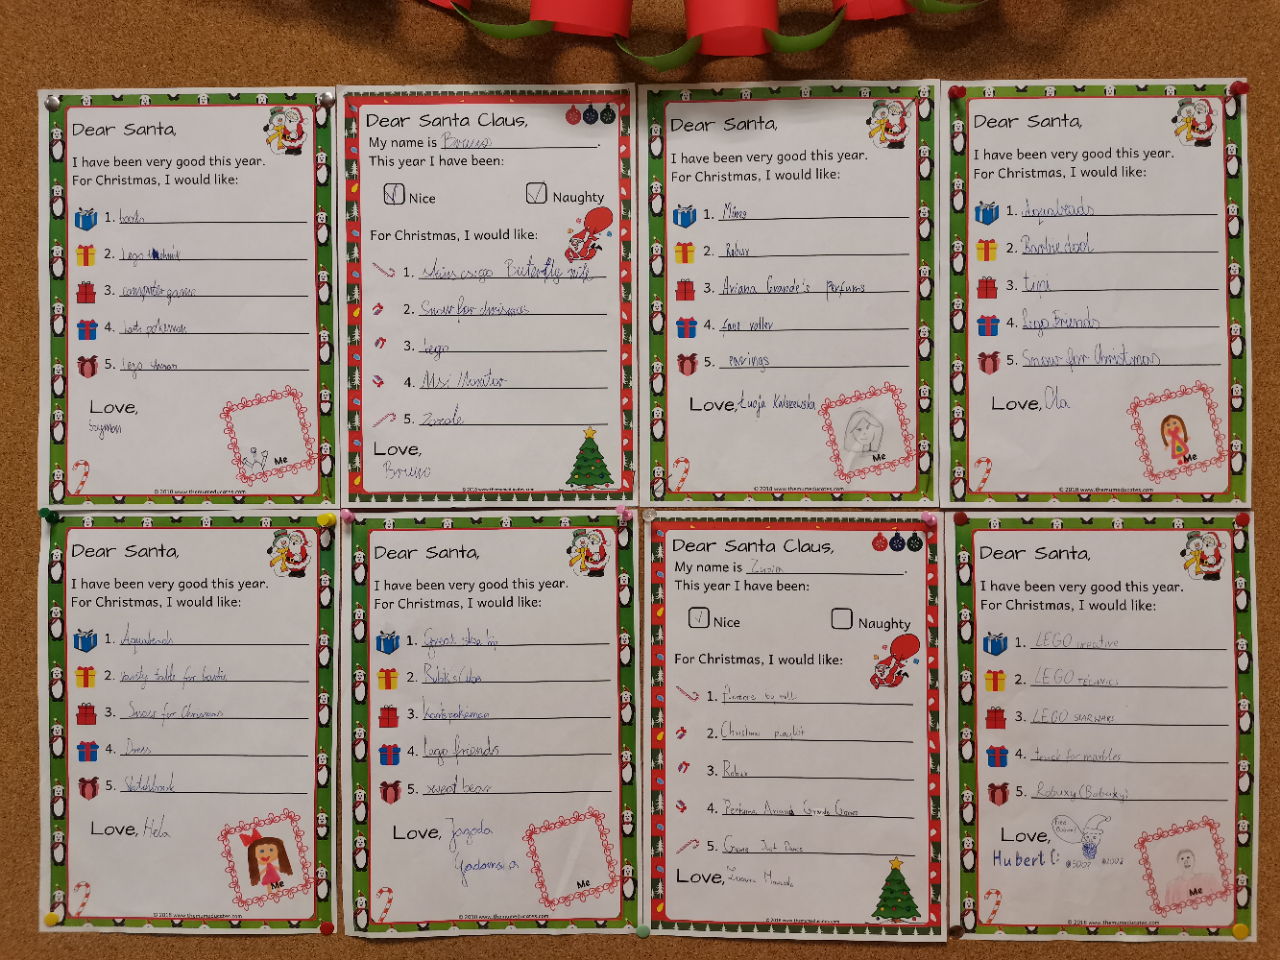 Dear Santa,
I have been very good this year.
For Christmas, I would like:
1. books
2. Lego
3. computer game
4. pokemon
5. Lego
Love,
Szymon
Me
© 2018 www.themumeducates.com
Dear Santa Claus,
My name is Bruno.
This year I have been:
Nice Naughty
For Christmas, I would like:
1. Butterfly
2. Snow for christmas
3. Lego
4. Msi Monitor
5.
Love,
Bruno
Dear Santa,
I have been very good this year.
For Christmas, I would like:
1.
2. Robux
3. Ariana Grande's Perfums
4. face roller
5. earings
Love, Łucja
Me
© 2018 www.themumeducates.com
Dear Santa,
I have been very good this year.
For Christmas, I would like:
1. Aquabeads
2. Barbie
3. tipi
4. Lego Friends
5. Snow for Christmas
Love, Ola
Me
© 2018 www.themumeducates.com
Dear Santa,
I have been very good this year.
For Christmas, I would like:
1. Aquabeads
2. table for
3. Snow for Christmas
4. Dress
5. Sketchbook
Love, Hela
Me
© 2018 www.themumeducates.com
Dear Santa,
I have been very good this year.
For Christmas, I would like:
1.
2.
3. pokemon
4. Lego friends
5. sweet bear
Love, Jagoda
Me
© 2018 www.themumeducates.com
Dear Santa Claus,
My name is Zuzia.
This year I have been:
Nice Naughty
For Christmas, I would like:
1.
2. Christmas playlist
3. Robux
4. Perfume Ariana Grande
5. Just Dance
Love,
Dear Santa,
I have been very good this year.
For Christmas, I would like:
1. LEGO creative
2. LEGO technics
3. LEGO STAR WARS
4. track for marbles
5. Robuxy
Love,
Hubert C:
Me
© 2018 www.themumeducates.com